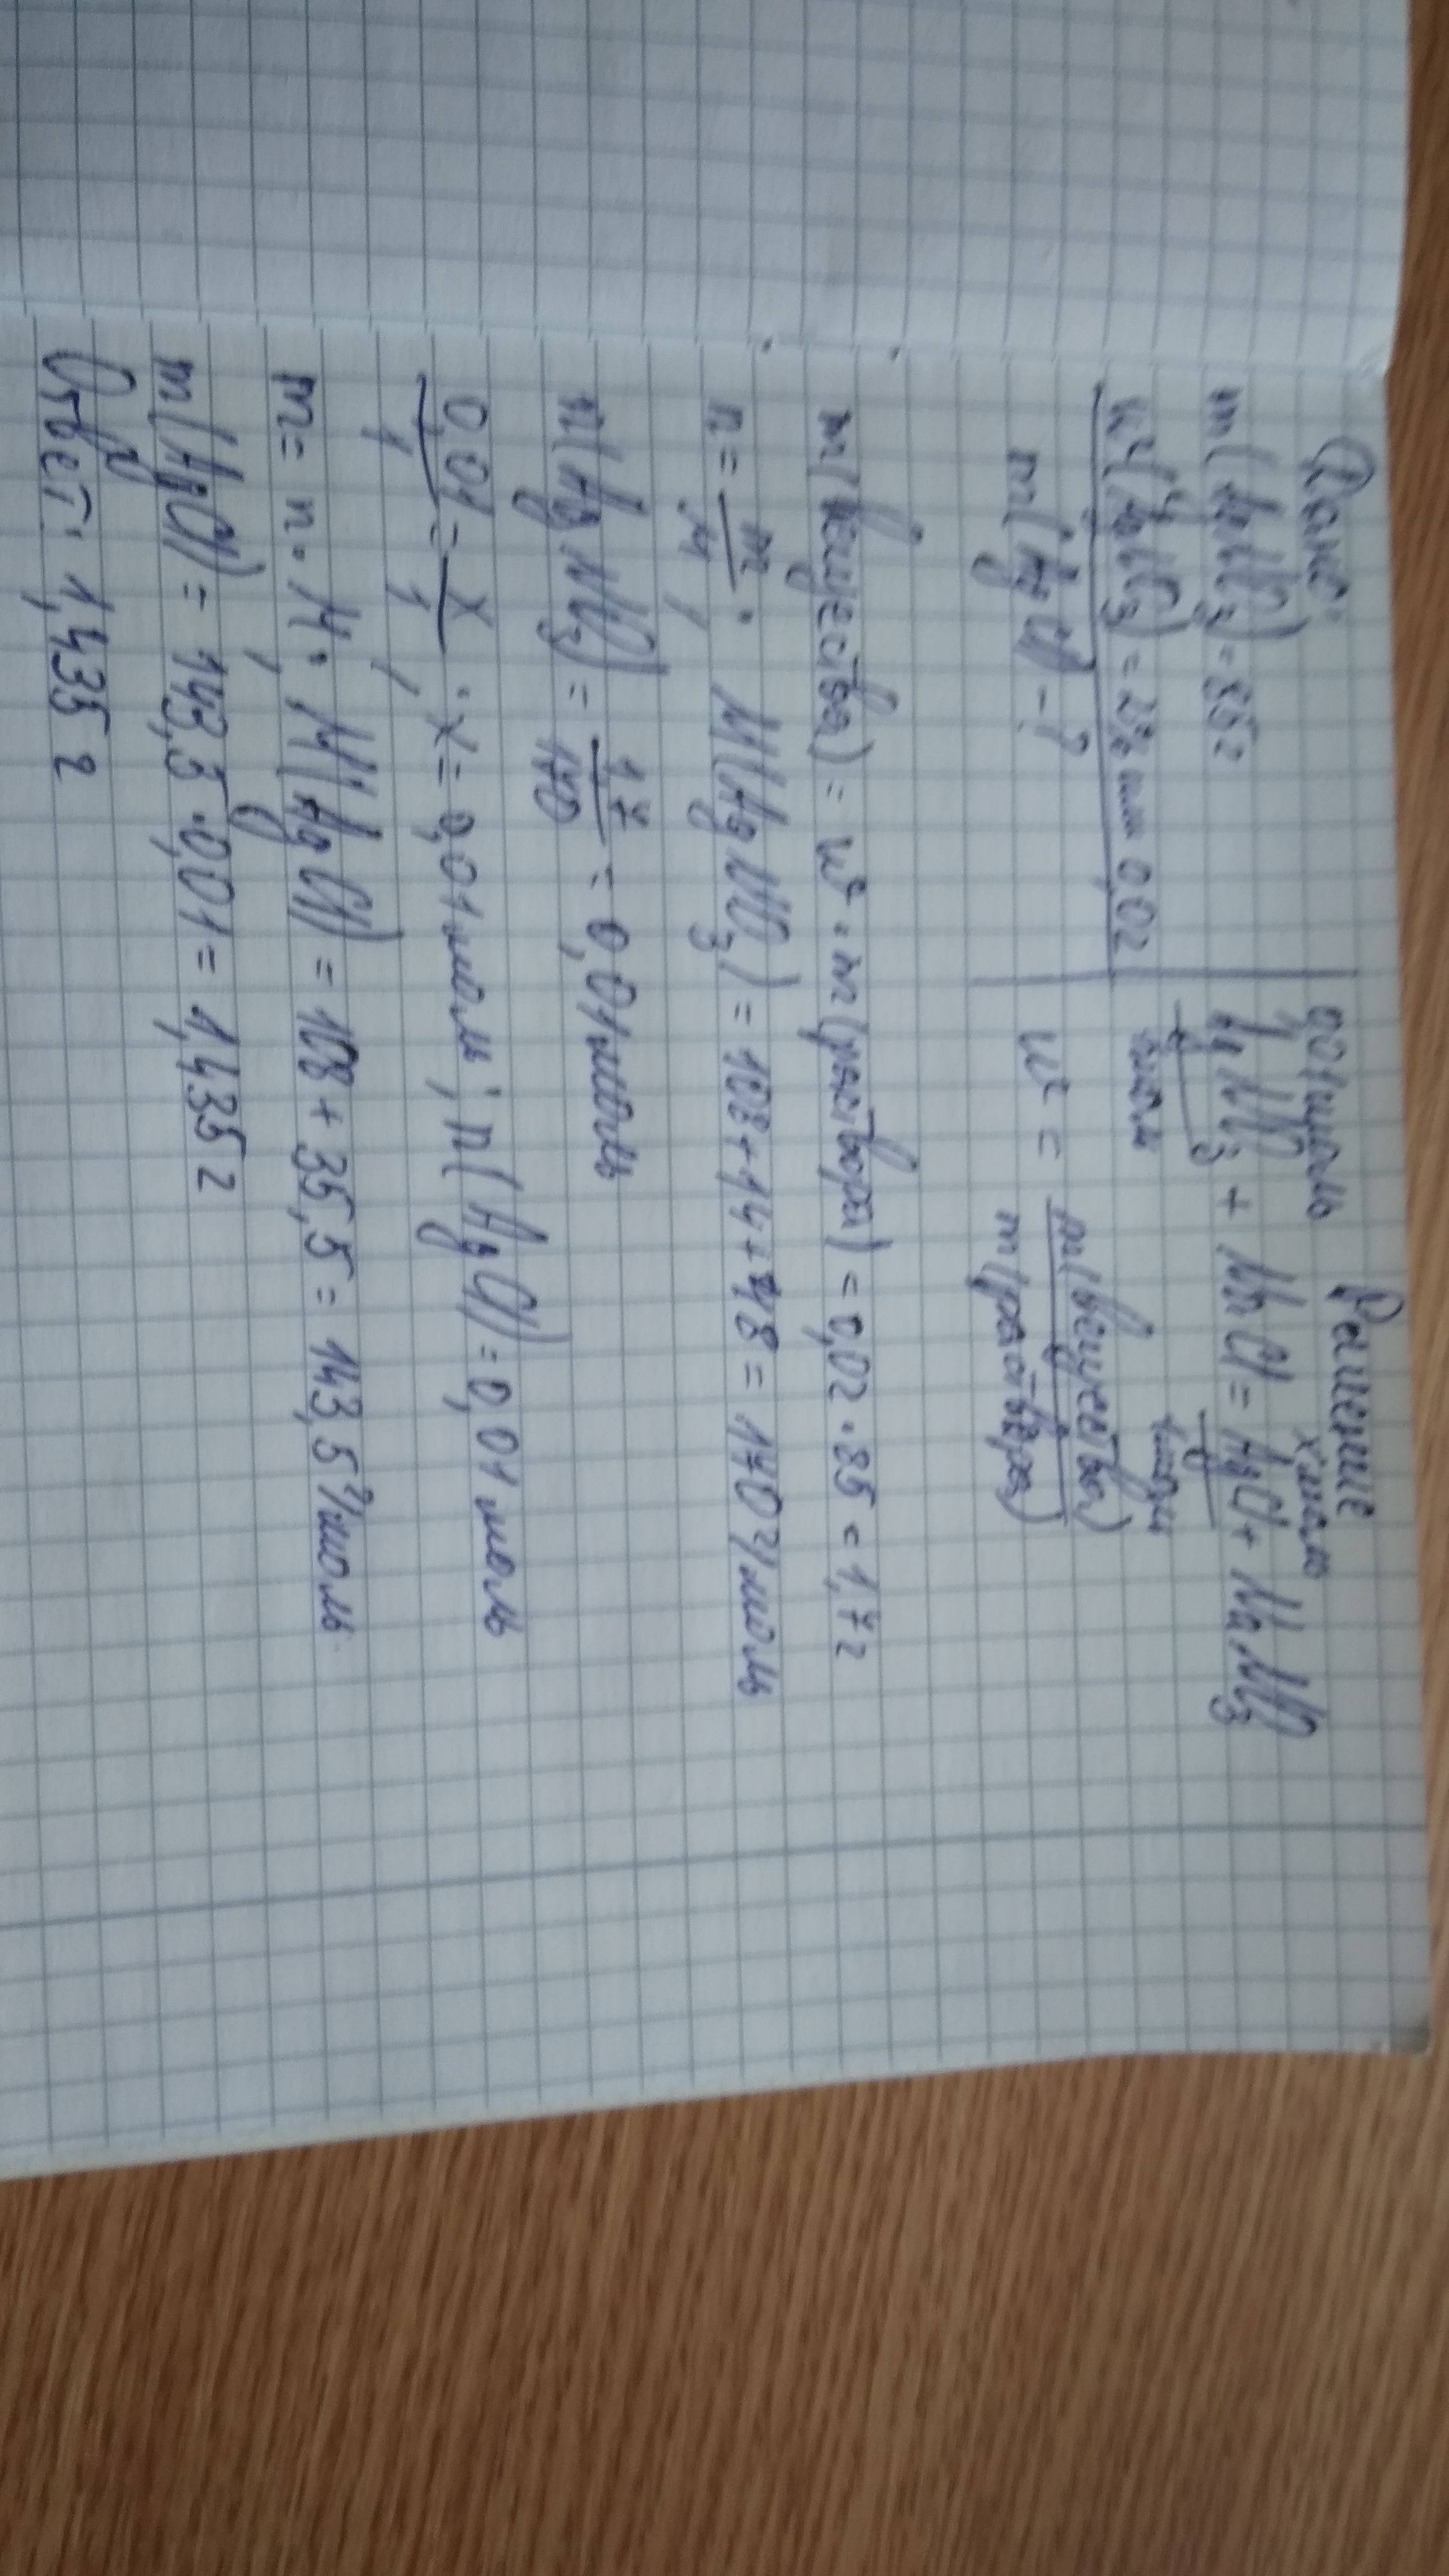 Дано:
m(AgNO3) = 85 г
w(AgNO3) = 2% или 0,02
m(AgCl) - ?
Решение
0,01 моль x моль
AgNO3 + NaCl = AgCl + NaNO3
1 моль 1 моль
w = m(вещества) / m(раствора)
m(вещества) = w · m(раствора) = 0,02 · 85 = 1,7 г
n = m/M; M(AgNO3) = 108 + 14 + 48 = 170 г/моль
n(AgNO3) = 1,7/170 = 0,01 моль
0,01/1 = x/1; x = 0,01 моль; n(AgCl) = 0,01 моль
m = n · M; M(AgCl) = 108 + 35,5 = 143,5 г/моль
m(AgCl) = 143,5 · 0,01 = 1,435 г
Ответ: 1,435 г